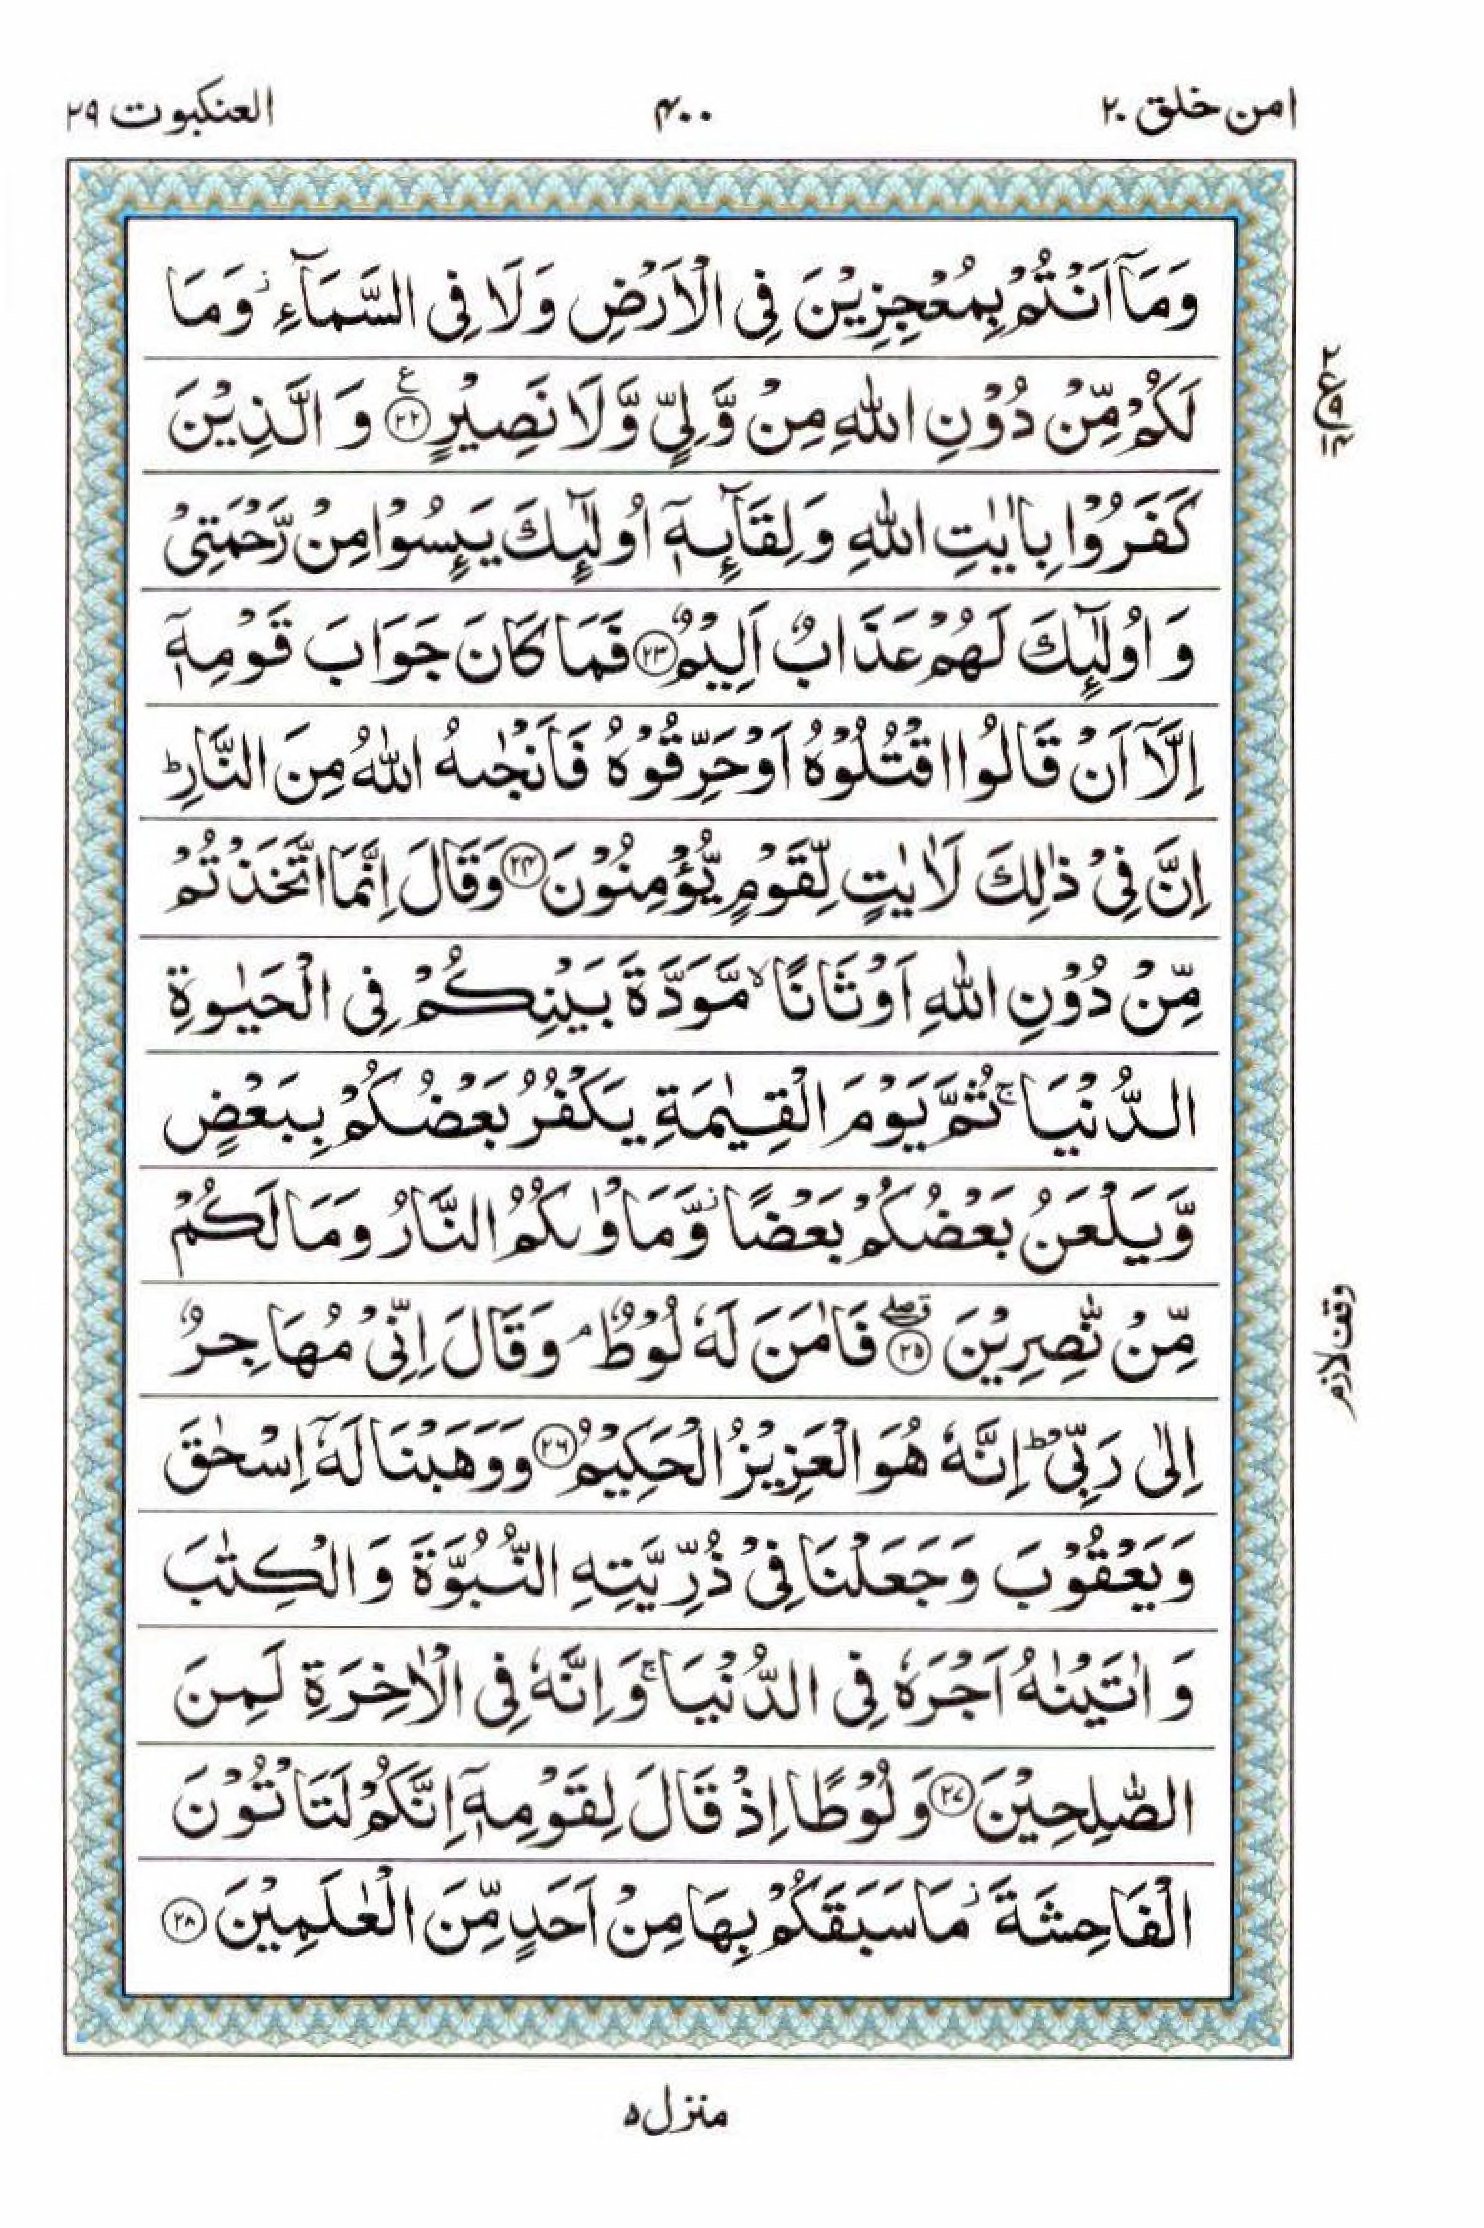 امن خلق ٢٠ ۴۰۰ العنكبوت ٢٩
وَمَآ اَنْتُمْ بِمُعْجِزِيْنَ فِي الْاَرْضِ وَلَا فِي السَّمَآءِ ۫ وَمَا
لَكُمْ مِّنْ دُوْنِ اللّٰهِ مِنْ وَّلِيٍّ وَّلَا نَصِيْرٍ ﴿٢٢﴾ ع وَ الَّذِيْنَ
كَفَرُوْا بِاٰيٰتِ اللّٰهِ وَ لِقَآئِهٖۤ اُولٰٓئِكَ يَئِسُوْا مِنْ رَّحْمَتِيْ
وَ اُولٰٓئِكَ لَهُمْ عَذَابٌ اَلِيْمٌ ﴿٢٣﴾ فَمَا كَانَ جَوَابَ قَوْمِهٖۤ
اِلَّاۤ اَنْ قَالُوا اقْتُلُوْهُ اَوْ حَرِّقُوْهُ فَاَنْجٰىهُ اللّٰهُ مِنَ النَّارِ ؕ
اِنَّ فِيْ ذٰلِكَ لَاٰيٰتٍ لِّقَوْمٍ يُّؤْمِنُوْنَ ﴿٢۴﴾ وَ قَالَ اِنَّمَا اتَّخَذْتُمْ
مِّنْ دُوْنِ اللّٰهِ اَوْثَانًا ۙ مَّوَدَّةَ بَيْنِكُمْ فِي الْحَيٰوةِ
الدُّنْيَا ۚ ثُمَّ يَوْمَ الْقِيٰمَةِ يَكْفُرُ بَعْضُكُمْ بِبَعْضٍ
وَّ يَلْعَنُ بَعْضُكُمْ بَعْضًا ۫ وَّ مَاْوٰىكُمُ النَّارُ وَمَا لَكُمْ
مِّنْ نّٰصِرِيْنَ ﴿٢٥﴾ ۗۖ فَاٰمَنَ لَهٗ لُوْطٌ ۘ وَقَالَ اِنِّيْ مُهَاجِرٌ
اِلٰى رَبِّيْ ؕ اِنَّهٗ هُوَ الْعَزِيْزُ الْحَكِيْمُ ﴿٢٦﴾ وَ وَهَبْنَا لَهٗۤ اِسْحٰقَ
وَ يَعْقُوْبَ وَ جَعَلْنَا فِيْ ذُرِّيَّتِهِ النُّبُوَّةَ وَ الْكِتٰبَ
وَ اٰتَيْنٰهُ اَجْرَهٗ فِي الدُّنْيَا ۚ وَ اِنَّهٗ فِي الْاٰخِرَةِ لَمِنَ
الصّٰلِحِيْنَ ﴿٢٧﴾ وَ لُوْطًا اِذْ قَالَ لِقَوْمِهٖۤ اِنَّكُمْ لَتَاْتُوْنَ
الْفَاحِشَةَ ۫ مَا سَبَقَكُمْ بِهَا مِنْ اَحَدٍ مِّنَ الْعٰلَمِيْنَ ﴿٢٨﴾
وقف لازم
منزل ۵